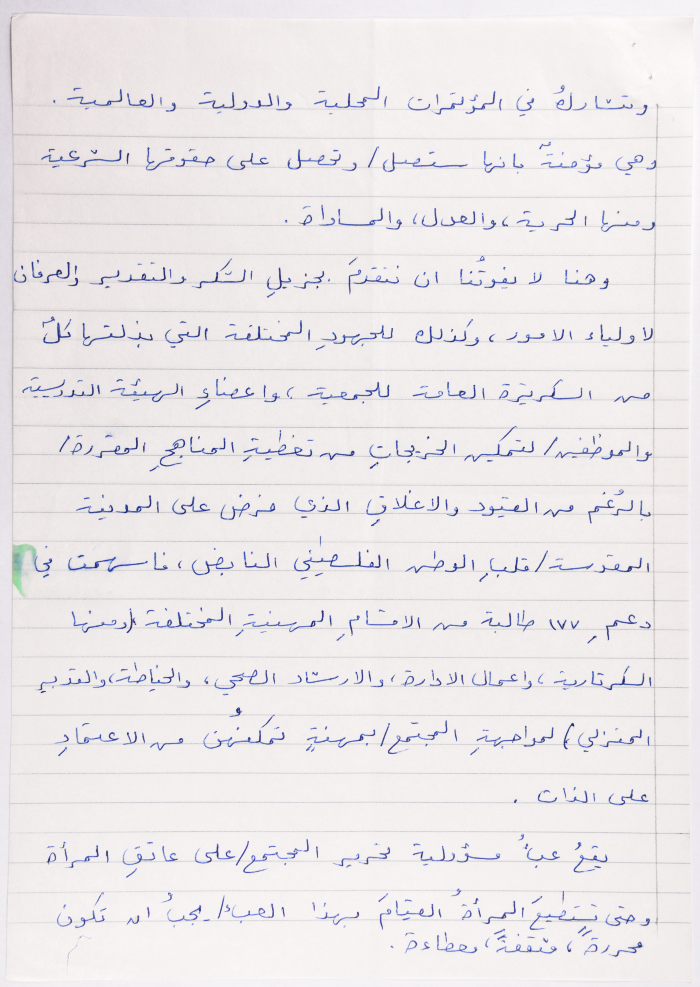 وتشاركُ في المؤتمرات المحلية والدولية والعالمية .
وهي مؤمنةٌ بانها ستصل/ وتحصل على حقوقها الشرعية
ومنها الحرية ، والعدل ، والمساواة .
وهنا لا يفوتُنا ان نتقدمَ بجزيلِ الشكر والتقدير والعرفان
لاولياء الامور ، وكذلك للجهودِ المختلفة التي بذلتها كلٌ
من السكرتيرة العامة للجمعية ، واعضاءِ الهيئة التدريسية
والموظفين/ لتمكين الخريجاتِ من تغطيةِ المناهجِ المقررة/
بالرُغم من القيود والاغلاقِ الذي فرض على المدينة
المقدسة/ قلبِ الوطن الفلسطيني النابض ، فاسهمت في
دعمِ ١٧٧ طالبة من الاقسامِ المهنيةِ المختلفة (ومنها
السكرتارية ، واعمال الادارة ، والارشاد الصحي ، والخياطة ، والتدبير
المنزلي) لمواجهةِ المجتمع/ بمهنةٍ تمكنُهن من الاعتمادِ
على الذات .
يقعُ عبءُ مسؤولية تحرير المجتمع/ على عاتقِ المرأة
وحتى تستطيعَ المرأةُ القيامَ بهذا العبء/ يجبُ ان تكون
محررةً ، مثقفةً ، معطاءة .